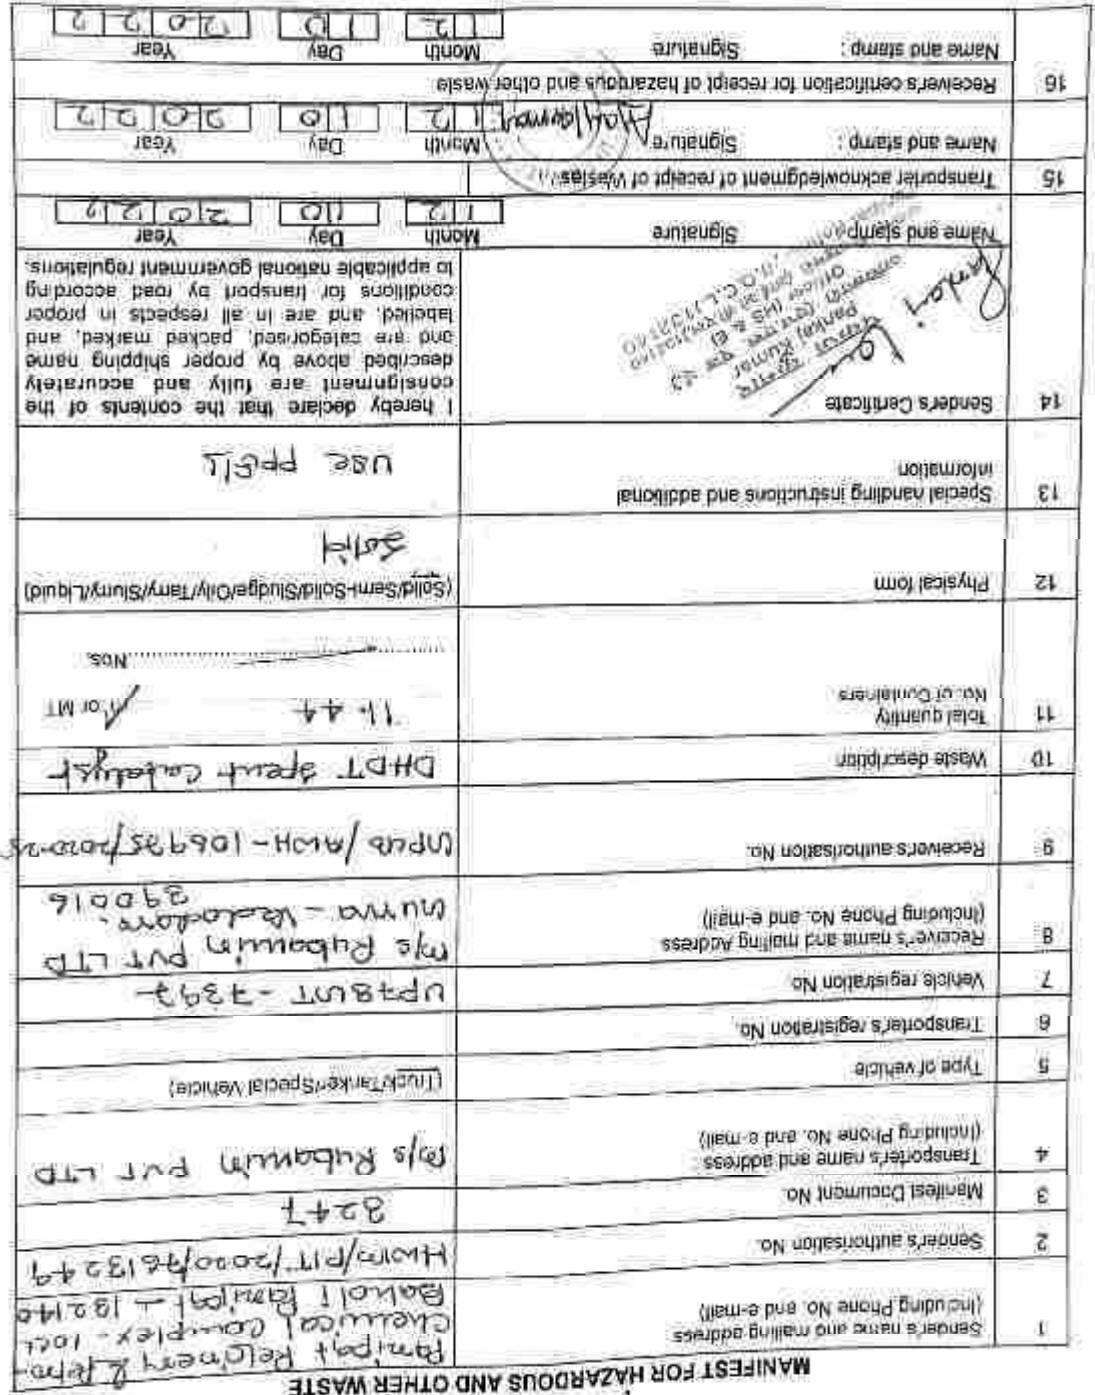 MANIFEST FOR HAZARDOUS AND OTHER WASTE
1 Sender's name and mailing address
(Including Phone No. and e-mail)
Panipat Refinery & Petro-
Chemical Complex - IOCL
Baholi Panipat - 132140
2 Sender's authorisation No.
HWM/PIT/2020/7613249
3 Manifest Document No.
3247
4 Transporter's name and address
(Including Phone No. and e-mail)
M/s Rubamin PVT LTD
5 Type of vehicle
(Truck/Tanker/Special Vehicle)
6 Transporter's registration No.
7 Vehicle registration No
UP78 -7397
8 Receiver's name and mailing Address
(Including Phone No. and e-mail)
M/s Rubamin PVT LTD
- Vadodara.
390016
9 Receiver's authorisation No.
10 Waste description
DHDT Spent Catalyst
11 Total quantity
No. of Containers
11.44
or MT
Nos.
12 Physical form
(Solid/Semi-Solid/Sludge/Oily/Tarry/Slurry/Liquid)
Solid
13 Special handling instructions and additional
information
USE PPE'S
14 Sender's Certificate
I hereby declare that the contents of the
consignment are fully and accurately
described above by proper shipping name
and are categorised, packed marked, and
labelled, and are in all respects in proper
conditions for transport by road according
to applicable national government regulations.
Pankaj Kumar
Name and stamp :
Signature
Month Day Year
12 10 2022
15 Transporter acknowledgment of receipt of Wastes
Name and stamp :
Signature
Month Day Year
12 10 2022
16 Receiver's certification for receipt of hazardous and other waste
Name and stamp :
Signature
Month Day Year
12 10 2022